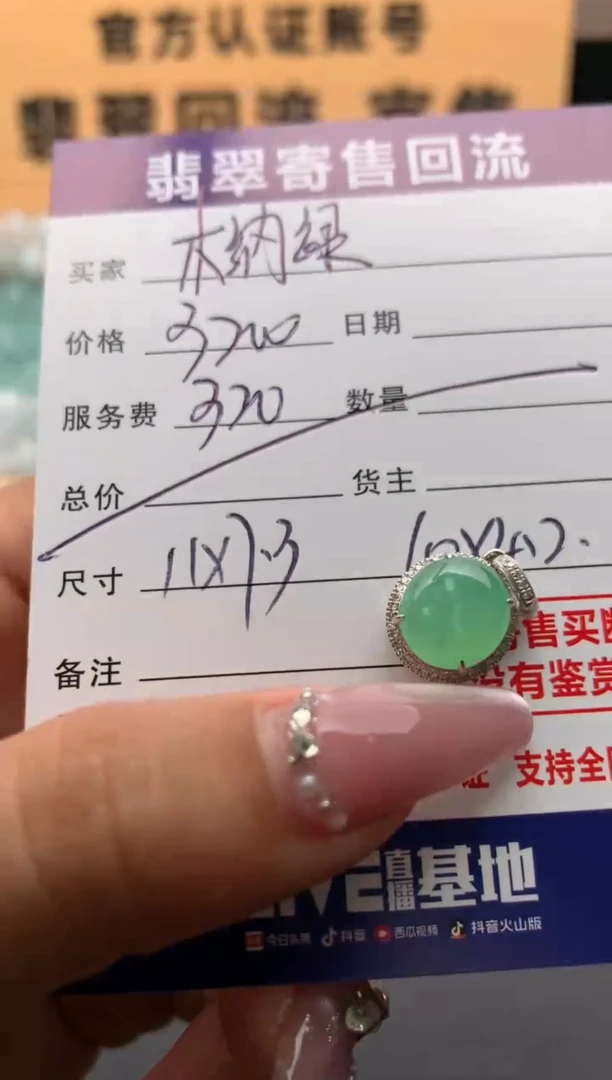 官方认证账号
翡翠回流 寄售
翡翠寄售回流
买家 木纳绿
价格 3700 日期
服务费 370 数量
总价 货主
尺寸 11X7.3
备注
售买断
没有鉴赏
证 支持全国
LIVE直播基地
今日头条 抖音 西瓜视频 抖音火山版